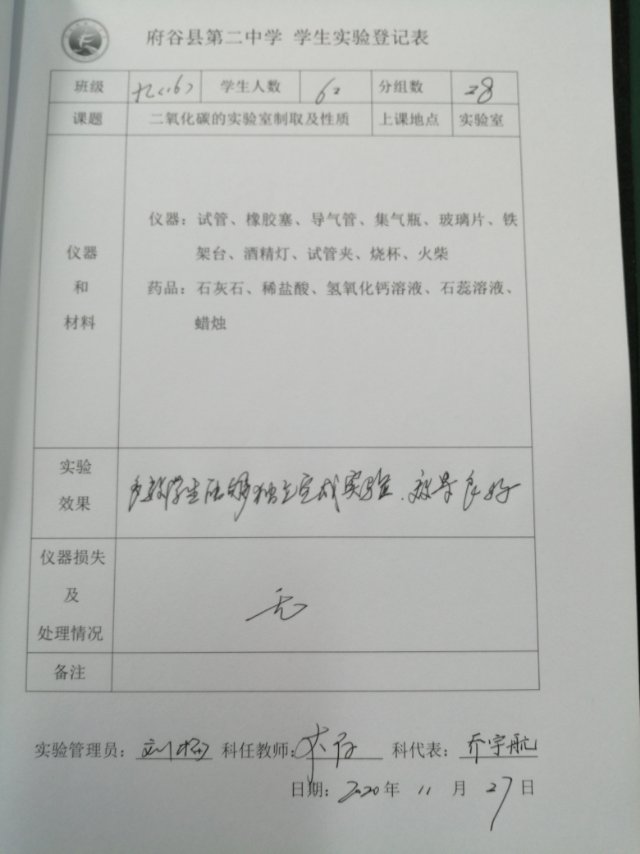 府谷县第二中学 学生实验登记表
班级 九(6) 学生人数 62 分组数 28
课题 二氧化碳的实验室制取及性质 上课地点 实验室
仪器和材料
仪器：试管、橡胶塞、导气管、集气瓶、玻璃片、铁
架台、酒精灯、试管夹、烧杯、火柴
药品：石灰石、稀盐酸、氢氧化钙溶液、石蕊溶液、
蜡烛
实验效果 多数学生能够独立完成实验，效果良好
仪器损失及处理情况 无
备注
实验管理员：刘杨 科任教师： 科代表：乔宇航
日期：2020年 11 月 27 日